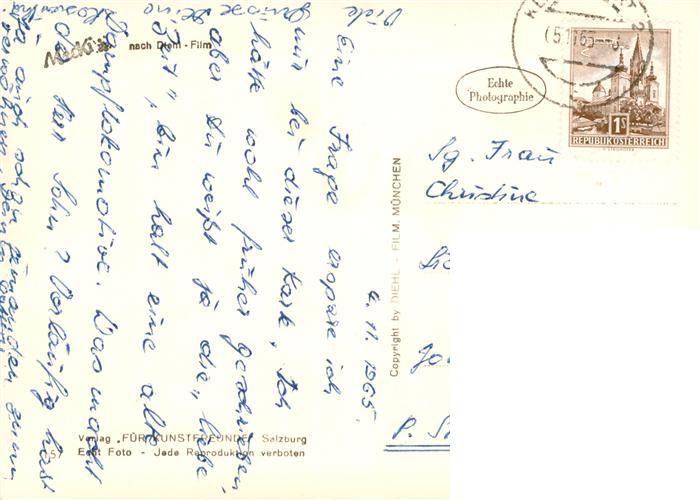 Mecki
nach Diehl-Film
Echte
Photographie
1S
REPUBLIK ÖSTERREICH
Sg. Frau
Christine
P. S
Copyright by DIEHL - FILM, MÜNCHEN
4. 11. 1965
Eine Frage erspare ich
mir bei dieser Karte, ich
hätte wohl früher geschrieben,
aber Du weißt ja die "liebe
Zeit", bin halt eine alte
Dampflokomotive. Was macht
der Herr Sohn? Vorläufig hast
Du auch schon jemanden zum
verwöhnen.
Viele
Grüße
Verlag "FÜR KUNSTFREUNDE" Salzburg
Echt Foto - Jede Reproduktion verboten